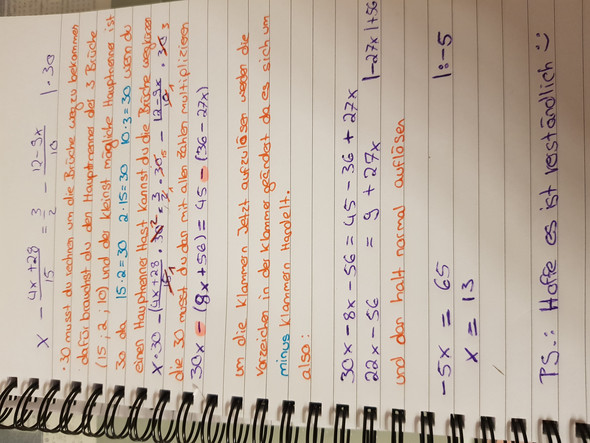 x - 4x+28/15 = 3/2 - 12-9x/10 | · 30
· 30 musst du rechnen um die Brüche weg zu bekommen
dafür brauchst du den Hauptnenner der 3 Brüche
(15 ; 2 ; 10) und der kleinst mögliche Hauptnenner ist
30 da 15·2=30 2·15=30 10·3=30 wenn du
einen Hauptnenner Hast kannst du die Brüche wegkürzen
x·30 - (4x+28/15 · 30 2 = 3/2 · 30 15 - 12-9x/10 · 30 3
die 30 musst du dan mit allen zahlen multiplizieren
30x - (8x+56) = 45 - (36 - 27x)
um die Klammern Jetzt aufzulösen werden die
Vorzeichen in der Klammer geändert da es sich um
minus Klammern handelt.
also:
30x - 8x - 56 = 45 - 36 + 27x
22x - 56 = 9 + 27x |-27x |+56
und dan halt normal auflösen
-5x = 65 |:-5
x = 13
PS.: Hoffe es ist verständlich